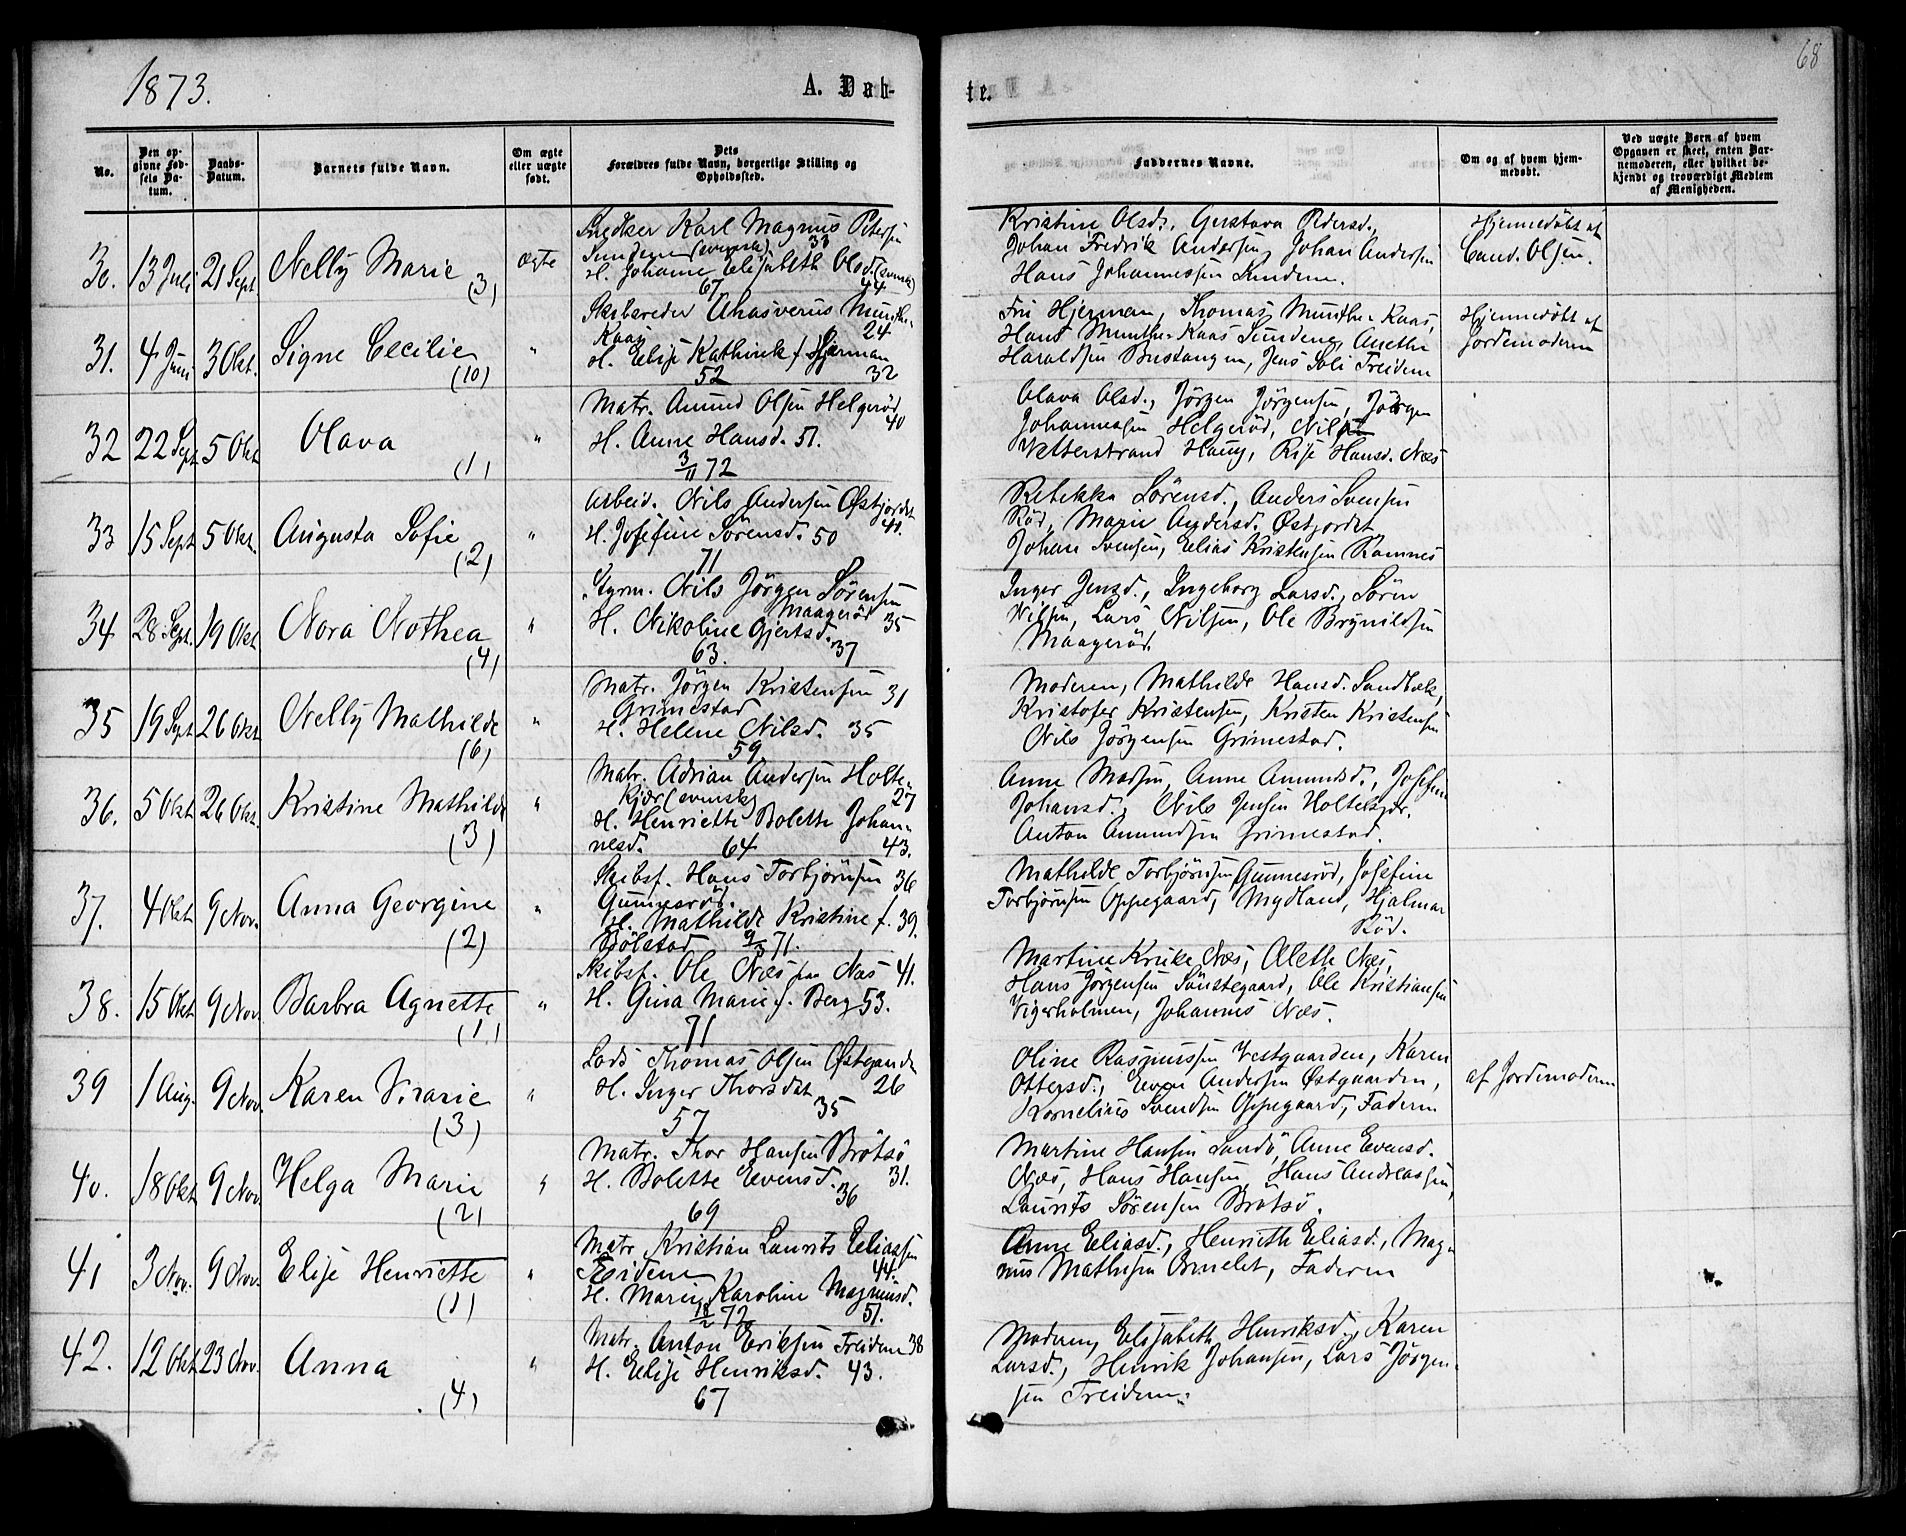 68
1873.
A. Døb-
te.
No.
Den op-
givne Fød-
sels Da-
tum.
Daabs-
Datum.
Barnets fulde Navn.
Om ægte
eller uægte
født.
Dets
Forældres fulde Navn, borgerlige Stilling og
Opholdssted.
Faddernes Navne.
Om og af hvem hjem-
medøbt.
Ved uægte Børn af hvem
Opgaven er skeet, enten Bar-
nemoderen, eller hvilket be-
kjendt og troværdigt Medlem
af Menigheden.
30. 13 Juli 21 Sept. Nelly Marie (3) ægte
Snedker Karl Magnus Petersen
Sundene (svensk) 33
H. Johanne Elisabeth Olsd. (svensk)
67 44
Kristine Olsd., Gustava Pedersd.,
Johan Fredrik Andersen, Johan Andersen
Hans Johannessen Sundene.
Hjemmedøbt af
Cand. Olsen.
31. 4 Juni 3 Okt. Signe Cecilie (10) "
Skibsreder Ahasverus Munthe-
Kaas 24
H. Elise Kathink f. Hjerman
52 32
Fru Hjerman, Thomas Munthe-Kaas,
Hans Munthe-Kaas Sundene, Anethe
Haraldsen Bustangen, Jens Soli Treidene
Hjemmedøbt af
Jordemoderen
32 22 Sept 5 Okt Olava (1) "
Matr. Amund Olsen Helgerød
40
H. Anne Hansd. 51.
3/11 72
Olava Olsd., Jörgen Jörgensen, Jörgen
Johannessen Helgeröd, Nils
Vetterstrand Haug, Rise Hansd. Næs
33 15 Sept 5 Okt. Augusta Sofie (2) "
Arbeid. Nils Andersen Østjordet
41.
H. Josefine Sørensd. 50
71
Rebekka Sörensd., Anders Svensen
Röd, Marie Andersd. Østjordet
Johan Svensen, Elias Kristensen Ramnes
34 28 Sept. 19 Okt Nora Nothea (4) "
Styrm. Nils Jörgen Sørensen
Maagerød 35
H. Nikoline Gjertsd.
63. 37
Inger Jensd., Ingeborg Larsd., Sören
Nilsen, Lars Nilsen, Ole Brynildsen
Maagerød.
35 19 Sept 26 Okt Nelly Mathilde (6) "
Matr. Jörgen Kristensen 31
Grimestad
H. Helene Nilsd. 35
59
Moderen, Mathilde Hansd. Sandbæk,
Kristofer Kristensen, Kristen Kristensen
Nils Jörgensen Grimestad.
36. 5 Okt 26 Okt. Kristine Mathilde (3) "
Matr. Adrian Andersen Holte-
kjær (svensk) 27
H. Henriette Bolette Johan-
nesd. 64 43.
Anne Madsen, Anne Amundsd., Josefine
Johansd., Nils Jensen Holtekjær,
Anton Amundsen Grimestad.
37. 4 Okt 9 Nov. Anna Georgine (2) "
Skibsf. Hans Torbjörnsen 36
Gunnerød.
H. Mathilde Kristine f. 39.
Bölstad 9/3 71.
Mathilde Torbjörnsen Gunnerød, Josefine
Torbjörnsen Oppegaard, Mydland, Hjalmar
Röd.
38. 15 Okt 9 Nov. Barbra Agnette (1) "
Skibsf. Ole Næs paa Næs 41.
H. Gina Marie f. Berg 53.
71
Martine Krike Næs, Alethe Næs,
Hans Jörgensen Sönstegaard, Ole Kristiansen
Vigerholmen, Johannes Næs.
39 1 Aug. 9 Nov. Karen Virarie (3) "
Lods Thomas Olsen Østgaarden
H. Inger Thorsdat 26
57 35
Oline Rasmussen Vestgaarden, Karen
Ottersd., Even Andersen Østgaarden,
Kornelius Svendsen Oppegaard, Faderen
af Jordemoderen
40. 18 Okt 9 Nov Helga Marie (2) "
Matr. Thor Hansen Brötsö
H. Bolette Evensd. 31.
69 36
Martine Hansen Sandö, Anne Evensd.
Næs, Hans Hansen, Hans Andreassen,
Laurits Sörensen Brötsö.
41 3 Nov. 9 Nov. Elise Henriette (1) "
Matr. Kristian Laurits Eliassen
Treidene 44.
H. Marie Karoline Magnusd.
18/2 72 51.
Anne Eliasd., Henriette Eliasd., Mag-
nus Mathisen Ormelet, Faderen
42. 12 Okt 23 Nov. Anna (4) "
Matr. Anton Eriksen Treidene 38
H. Elise Henriksd. 43.
67
Moderen, Elisabeth Henriksd., Karen
Larsd., Henrik Johansen, Lars Jörgen-
sen Treidene.